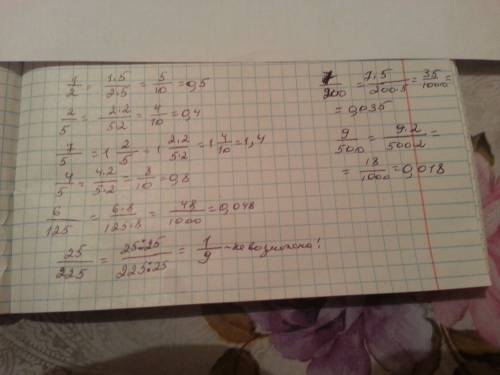 1/2 = 1·5/2·5 = 5/10 = 0,5
2/5 = 2·2/5·2 = 4/10 = 0,4
7/5 = 1 2/5 = 1 2·2/5·2 = 1 4/10 = 1,4
4/5 = 4·2/5·2 = 8/10 = 0,8
6/125 = 6·8/125·8 = 48/1000 = 0,048
25/225 = 25:25/225:25 = 1/9 - невозможно!
7/200 = 7·5/200·5 = 35/1000 =
= 0,035
9/500 = 9·2/500·2 =
= 18/1000 = 0,018